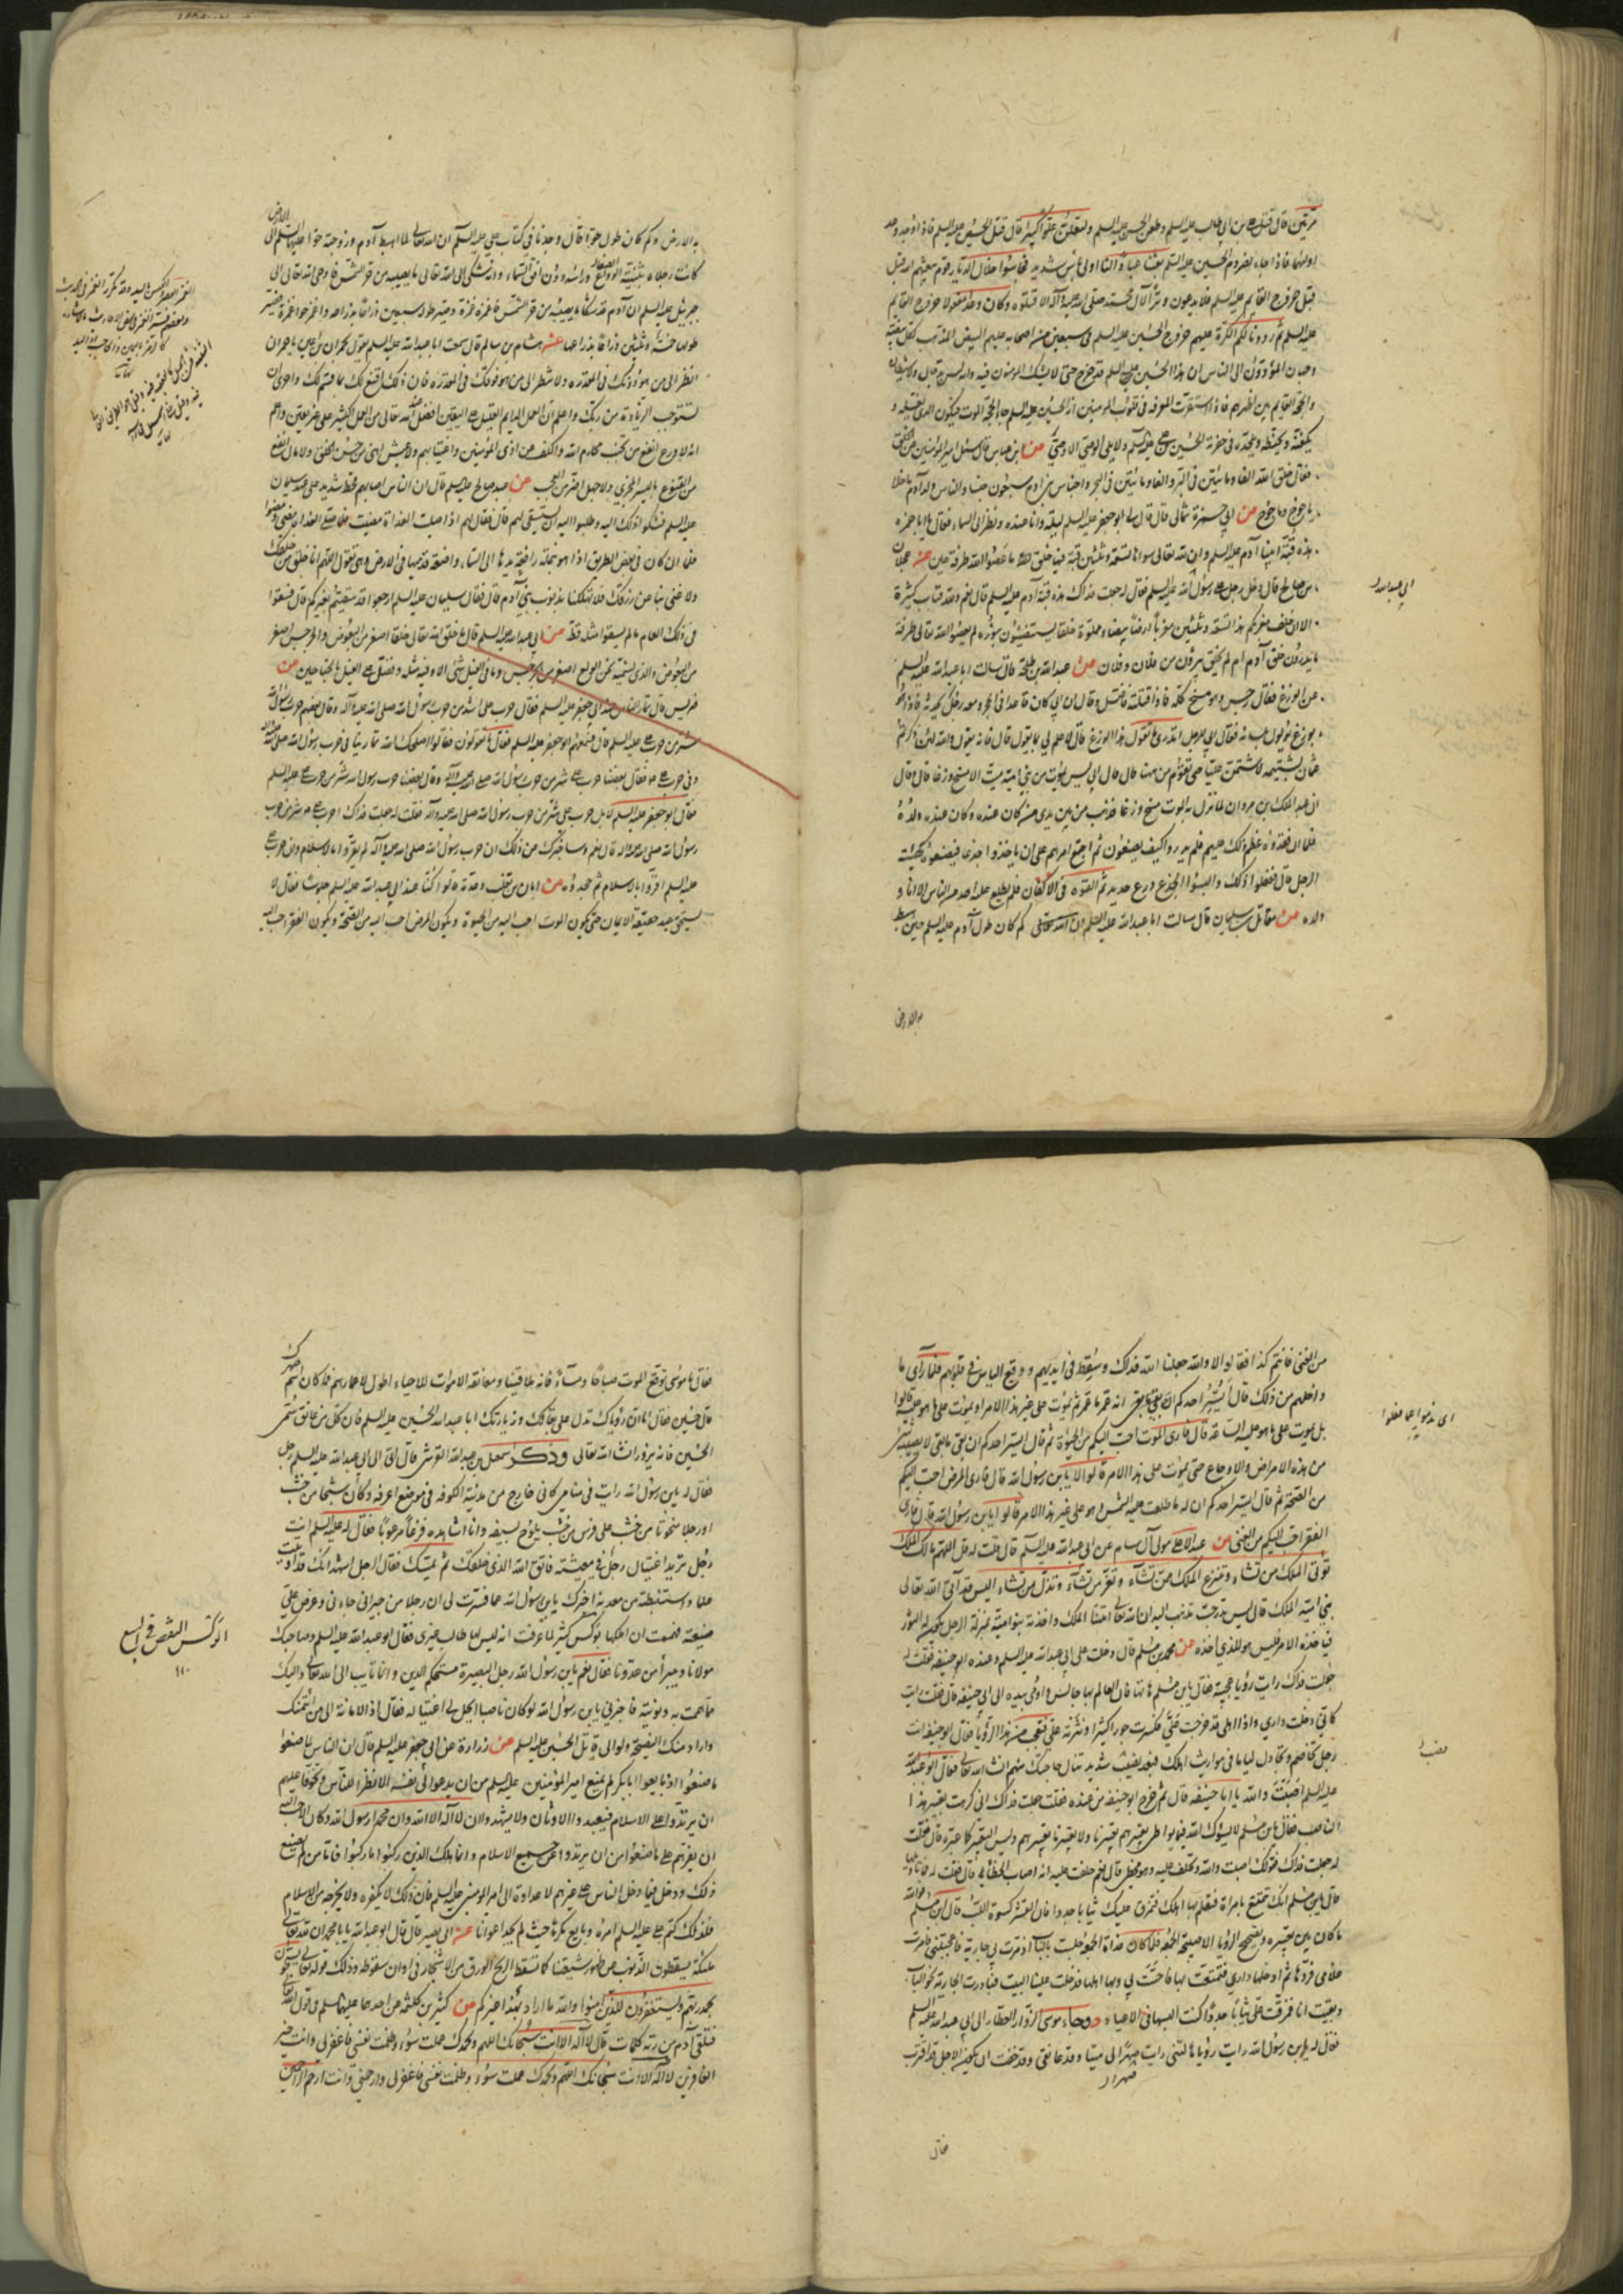 مرتين قال قتل علي بن ابي طالب عليه السلم وطعن الحسن عليه السلم ولتعلن علوا كبيرا قال قتل الحسين عليه السلم فاذا جاء وعد
اوليهما فاذا جاء نصر دم الحسين عليه السلم بعثنا عليكم عبادا لنا اولي باس شديد فجاسوا خلال الديار قوم يبعثهم الله قبل
قبل خروج القايم عليه السلم فلا يدعون وترا لآل محمد صلى الله عليه وآله الا قتلوه وكان وعدا مفعولا خروج القايم
عليه السلم ثم رددنا لكم الكرة عليهم خروج الحسين عليه السلم في سبعين من اصحابه عليهم البيض المذهب لكل بيضة
وجهان المؤدون الى الناس ان هذا الحسين عليه السلم قد خرج حتى لا يشك المومنون فيه وانه ليس بدجال ولا شيطان
والحجة القايم بين اظهرهم فاذا استقرت المعرفة في قلوب المومنين انه الحسين عليه السلم جاء الحجة الموت فيكون الذي يغسله و
يكفنه ويحنطه ويلحده في حفرته الحسين بن علي عليه السلم ولا يلي الوصي الا الوصي عن ابن عباس قال سئل امير المؤمنين عن الخلق
فقال خلق الله الفا ومائتين في البر والفا ومائتين في البحر واجناس بني ادم سبعون جنسا والناس ولد آدم ما خلا
ياجوج وماجوج عن ابي حمزة ثمالي قال قال لي ابو جعفر عليه السلم ليلة وانا عنده ونظر الى السماء فقال يا ابا حمزه
هذه قبة ابينا آدم عليه السلم وان لله تعالى سواها تسعة وثلثين قبة فيها خلق الله ما عصوا الله طرفة عين عنه عجلان
بن صالح قال دخل رجل على رسول الله عليه السلم فقال له جعلت فداك هذه قبة آدم عليه السلم قال نعم ولله قباب كثيرة
الا ان خلف مغربكم هذا تسعة وثلثين مغربا ارضا بيضاء مملوة خلقا يستضيئون بنوره لم يعصوا الله تعالى طرفة
ما يدرون خلق آدم ام لم يخلق يبرؤن من فلان وفلان عن عبد الله بن طلحة قال سالت ابا عبد الله عليه السلم
عن الوزغ فقال رجس وهو مسخ كله فاذا قتلته فاغتسل وقال ان ابي كان قاعدا في الحجر ومعه رجل يحدثه فاذا هو
بوزغ يولول بلسانه فقال ابي للرجل اتدري ما تقول هذا الوزغ قال لا علم لي بما يقول قال فانه يقول والله لئن ذكرتم
عثمان بشتيمة لاشتمن عليا حتى تقوم من ههنا قال قال ابي ليس يموت من بني امية ميت الا مسخ وزغا قال وقال
ان عبد الملك بن مروان لما نزل به الموت مسخ وزغا فذهب من بين يدي من كان عنده وكان عنده ولده
فلما ان فقدوه عظم ذلك عليهم فلم يدروا كيف يصنعون ثم اجتمع امرهم على ان ياخذوا جذعا فيصنعوه كهيئة
الرجل قال ففعلوا ذلك والبسوا الجذع درع حديد ثم القوه في الاكفان فلم يطلع عليه احد من الناس الا انا و
ولده عن مقاتل بن سليمان قال سالت ابا عبد الله عليه السلم كم كان طول آدم عليه السلم حين هبط
به الارض
ابي عبد الله
به الارض وكم كان طول حوا قال وجدنا في كتاب علي عليه السلم ان الله تعالى لما اهبط آدم وزوجته حوا عليهما السلم الى الارض
كانت رجلاه بثنية الصفا وراسه دون افق السماء وانه شكى الى الله تعالى ما يصيبه من حر الشمس فاوحى الله تعالى الى
جبرئيل عليه السلم ان آدم قد شكا ما يصيبه من حر الشمس فاغمزه غمزة وصير طوله سبعين ذراعا بذراعه واغمز حوا غمزة فيصير
طولها خمسة وثلثين ذراعا بذراعها عنه هشام بن سالم قال سمعت ابا عبد الله عليه السلم يقول لحمران بن اعين يا حمران
انظر الى من هو دونك في المقدرة ولا تنظر الى من هو فوقك في المقدرة فان ذلك اقنع لك بما قسم لك واحرى ان
تستوجب الزيادة من ربك واعلم ان العمل الدايم القليل على اليقين افضل عند الله تعالى من العمل الكثير على غير يقين واعلم
انه لا ورع انفع من تجنب محارم الله والكف عن اذى المؤمنين واغتيابهم ولا عيش اهنى من حسن الخلق ولا مال انفع
من القنوع باليسير المجزي ولا جهل اضر من العجب عن عبد صالح عليه السلم قال ان الناس اصابهم قحط شديد على عهد سليمان
عليه السلم فشكوا ذلك اليه وطلبوا اليه ان يستسقي لهم قال فقال لهم اذا صليت الغداة مضيت فلما صلى الغداة مضى ومضوا
فلما ان كان في بعض الطريق اذا هو بنملة رافعة يدها الى السماء واضعة قدميها في الارض وهي تقول اللهم انا خلق من خلقك
ولا غنى بنا عن رزقك فلا تهلكنا بذنوب بني آدم قال فقال سليمان عليه السلم ارجعوا فقد سقيتم بغيركم قال فسقوا
في ذلك العام ما لم يسقوا مثله قط عن ابي عبد الله عليه السلم قال ما خلق الله تعالى خلقا اصغر من البعوض والجرجس اصغر
من البعوض والذي نسميه نحن الولع اصغر من الجرجس وما في الفيل شئ الا وفيه مثله وفضل على الفيل بالجناحين عن
ضريس قال تمارى الناس عند ابي جعفر عليه السلم فقال بعضهم حرب علي شر من حرب رسول الله صلى الله عليه وآله وقال بعضهم حرب رسول الله
شر من حرب علي عليه السلم قال فسمعهم ابو جعفر عليه السلم فقال ما تقولون فقالوا اصلحك الله تمارينا في حرب رسول الله صلى الله عليه وآله
وفي حرب علي فقال بعضنا حرب علي شر من حرب رسول الله صلى الله عليه وآله وقال بعضنا حرب رسول الله شر من حرب علي عليه السلم
فقال ابو جعفر عليه السلم لا بل حرب علي شر من حرب رسول الله صلى الله عليه وآله فقلت له جعلت فداك احرب علي شر من حرب
رسول الله صلى الله عليه وآله قال نعم وساخبرك عن ذلك ان حرب رسول الله صلى الله عليه وآله لم يقروا بالاسلام وان حرب علي
عليه السلم اقروا بالاسلام ثم جحدوه عن ابان بن تغلب وعدة قالوا كنا عند ابي عبد الله عليه السلم جلوسا فقال لا
يستحق عبد حقيقة الايمان حتى يكون الموت احب اليه من الحيوة ويكون المرض احب اليه من الصحة ويكون الفقر احب اليه
من الغنى فانتم كذا فقالوا لا والله جعلنا الله فداك وسقط في ايديهم ووقع الياس في قلوبهم فلما رأى ما
داخلهم من ذلك قال أيسر احدكم انه عمر ما عمر ثم يموت على غير هذا الامر او يموت على ما هو عليه قالوا
بل يموت على ما هو عليه الساعة قال فارى الموت احب اليكم من الحيوة ثم قال ايسر احدكم ان بقي ما بقي لا يصيبه شئ
من هذه الامراض والاوجاع حتى يموت على هذا الامر قالوا لا يابن رسول الله قال فارى المرض احب اليكم
من الصحة ثم قال ايسر احدكم ان له ما طلعت عليه الشمس وهو على غير هذا الامر قالوا لا يابن رسول الله قال فارى
الفقر احب اليكم من الغنى عن عبد الاعلى مولى آل سام عن ابي عبد الله عليه السلم قال قلت له قل اللهم مالك الملك
تؤتي الملك من تشاء وتنزع الملك ممن تشاء وتعز من تشاء وتذل من تشاء اليس قد آتى الله تعالى
بني امية الملك قال ليس حيث تذهب اليه ان الله تعالى اتانا الملك واخذته بنو امية بمنزلة الرجل يكون له الثوب
فياخذه الاخر فليس هو للذي اخذه عن محمد بن مسلم قال دخلت على ابي عبد الله عليه السلم وعنده ابو حنيفه فقلت له
جعلت فداك رايت رؤيا عجيبة فقال يابن مسلم هاتها فان العالم بها جالس واومى بيده الى ابي حنيفه قال فقلت رايت
كاني دخلت داري واذا اهلي قد خرجت علي فكسرت جوزا كثيرا ونثرته علي فتعجبت من هذه الرؤيا فقال ابو حنيفه انت
رجل تخاصم وتجادل لئاما في مواريث اهلك فبعد تعب شديد تنال حاجتك منها ان شاء الله تعالى فقال ابو عبد الله
عليه السلم اصبت والله يا ابا حنيفه قال ثم خرج ابو حنيفه من عنده فقلت جعلت فداك اني كرهت تعبير هذا
الناصب فقال يابن مسلم لا يسوك الله فما يواطي تعبيرهم تعبيرنا ولا تعبيرنا تعبيرهم وليس التعبير كما عبره قال فقلت
له جعلت فداك فقولك اصبت والله وتحلف عليه وهو مخطئ قال نعم حلفت عليه انه اصاب الخطأ قال فقلت له فما تاويلها
قال يابن مسلم انك تتمتع بامراة فتعلم بها اهلك فتمزق عليك ثيابا جددا فان القشر كسوة اللب قال ابن مسلم فوالله
ما كان بين تعبيره وتصحيح الرؤيا الا صبيحة الجمعه فلما كان غداة الجمعه جلست بالباب اذ مرت بي جارية فاعجبتني فامرت
غلامي فردها ثم ادخلها داري فتمتعت بها فاحست بي وبها اهلي فدخلت علينا البيت فبادرت الجارية نحو الباب
وبقيت انا فمزقت علي ثيابا جددا كنت البسها في الاعياد وجاء موسى الزوار العطار الى ابي عبد الله عليه السلم
فقال له يابن رسول الله رايت رؤيا هالتني رايت صهرا لي ميتا وقد عانقني وقد خفت ان يكون الاجل قد اقترب
فقال
فقال يا موسى توقع الموت صباحا ومساء فانه ملاقينا ومعانقة الاموات للاحياء اطول لاعمارهم فما كان اسم صهرك
قال حسين فقال اما ان رؤياك تدل على بقائك وزيارتك ابا عبد الله الحسين عليه السلم فان كل من عانق سمي
الحسين فانه يزوره ان شاء الله تعالى وذكر اسمعيل بن عبد الله القرشي قال اتى الى ابي عبد الله عليه السلم رجل
فقال له يابن رسول الله رايت في منامي كاني خارج من مدينة الكوفه في موضع اعرفه وكان شبحا من خشب
او رجلا منحوتا من خشب على فرس من خشب يلوح بسيفه وانا اشاهده فزعا مرعوبا فقال له عليه السلم انت
رجل تريد اغتيال رجل في معيشته فاتق الله الذي خلقك ثم يميتك فقال الرجل اشهد انك قد اوتيت
علما واستنبطته من معدنه اخبرك يابن رسول الله عما فسرت لي ان رجلا من جيراني جاءني وعرض علي
ضيعته فهممت ان املكها بوكس كثير لما عرفت انه ليس لها طالب غيري فقال ابو عبد الله عليه السلم وصاحبك
يتولانا ويبرأ من عدونا فقال نعم يابن رسول الله رجل جيد البصيرة مستحكم الدين وانا تايب الى الله تعالى واليك
مما هممت به ونويته فاخبرني يابن رسول الله لو كان ناصبا ايحل لي اغتياله فقال اد الامانة الى من ائتمنك
واراد منك النصيحة ولو الى قاتل الحسين عليه السلم عن زرارة عن ابي جعفر عليه السلم قال ان الناس لما صنعوا
ما صنعوا اذ بايعوا ابا بكر لم يمنع امير المؤمنين عليه السلم من ان يدعوا الى نفسه الا نظرا للناس وتخوفا عليهم
ان يرتدوا على الاسلام فيعبدوا الاوثان ولا يشهدوا ان لا اله الا الله وان محمدا رسول الله وكان الاحب اليه
ان يقرهم على ما صنعوا من ان يرتدوا عن جميع الاسلام وانما هلك الذين ركبوا ما ركبوا فاما من لم يصنع
ذلك ودخل فيما دخل الناس على غير علم ولا عداوة الى امير المومنين عليه السلم فان ذلك لا يكفره ولا يخرجه من الاسلام
فلذلك كتم علي عليه السلم امره وبايع مكرها حيث لم يجد اعوانا عنه ابي بصير قال قال ابو عبد الله يابا محمد ان لله تعالى
ملئكة يسقطون الذنوب عن ظهور شيعتنا كما تسقط الريح الورق من الاشجار في اوان سقوطه وذلك قوله تعالى يسبحون
بحمد ربهم ويستغفرون للذين امنوا والله ما اراد بهذا غيركم عن كثير بن كلثمه عن احدهما عليهما السلم في قول الله تعالى
فتلقى آدم من ربه كلمات قال لا اله الا انت سبحانك اللهم وبحمدك عملت سوء وظلمت نفسي فاغفر لي وانت خير
الغافرين لا اله الا انت سبحانك اللهم وبحمدك عملت سوء وظلمت نفسي فاغفر لي وارحمني وانت ارحم الراحمين
الوكس النقص في البيع